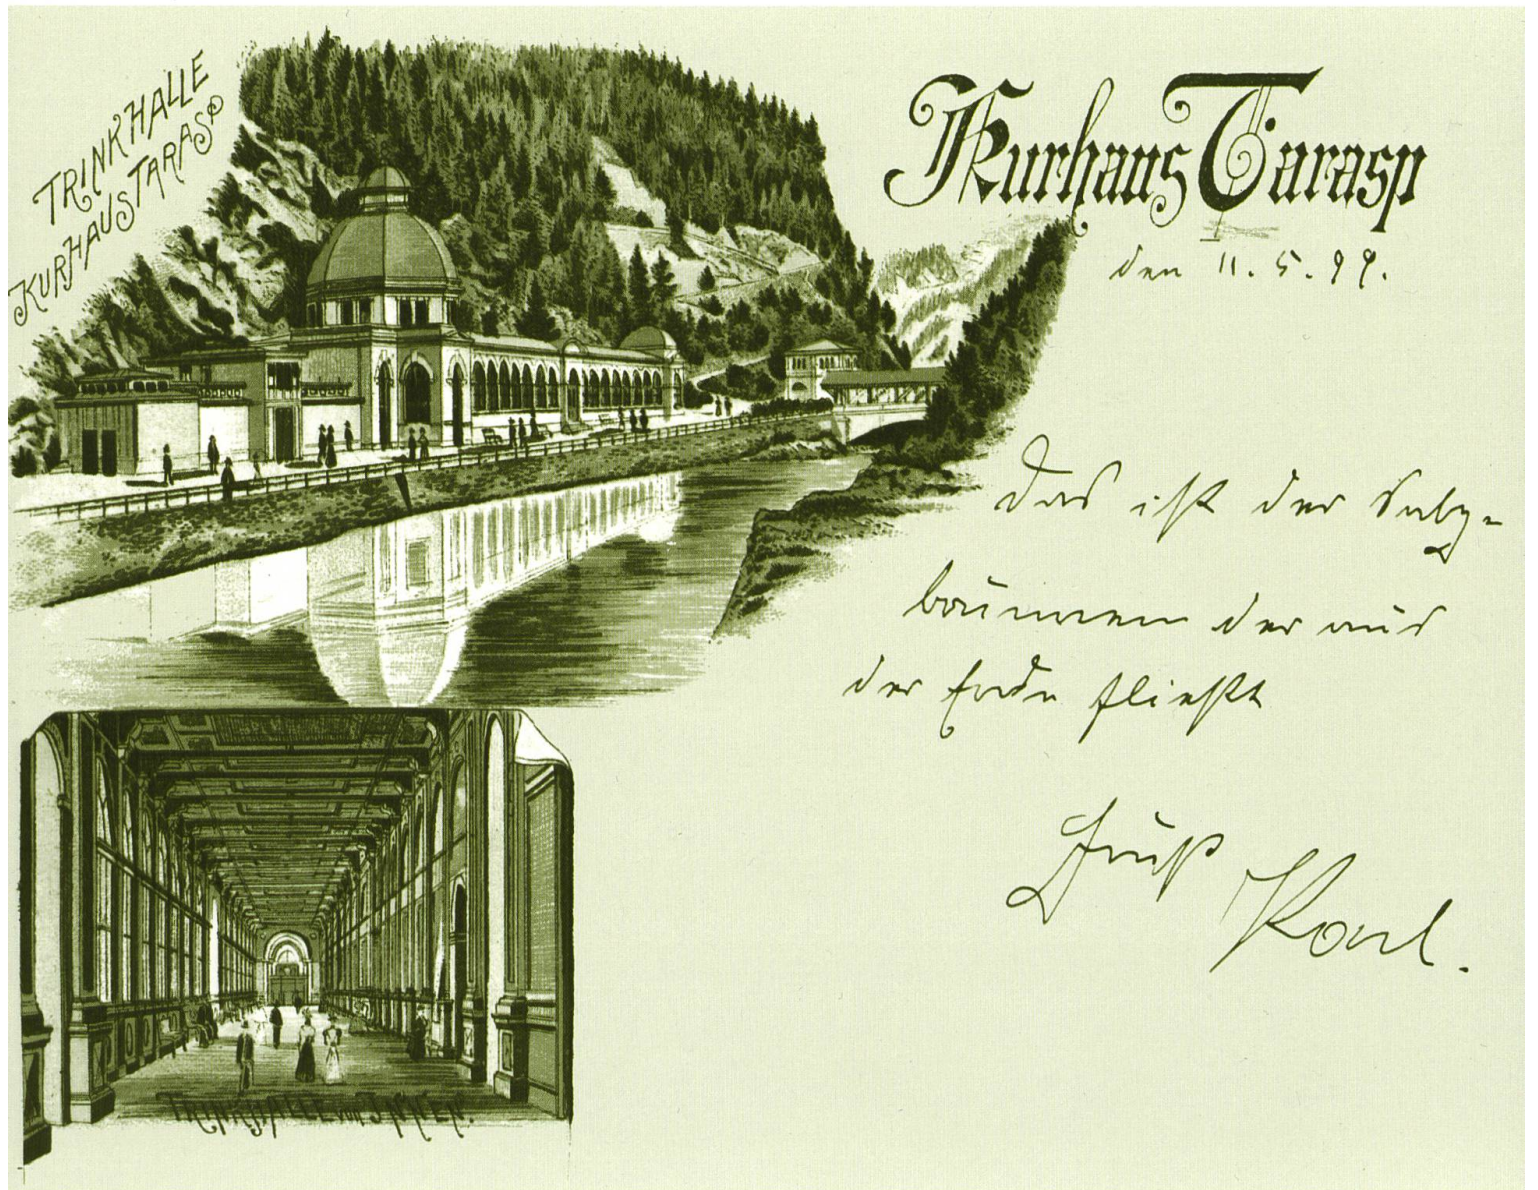 TRINKHALLE
KURHAUS TARASP
Kurhaus Tarasp
den 11. 5. 99.
Das ist der Salz-
brunnen der aus
der Erde fließt
Gruß
Karl.
TRINKHALLE VON INNEN.